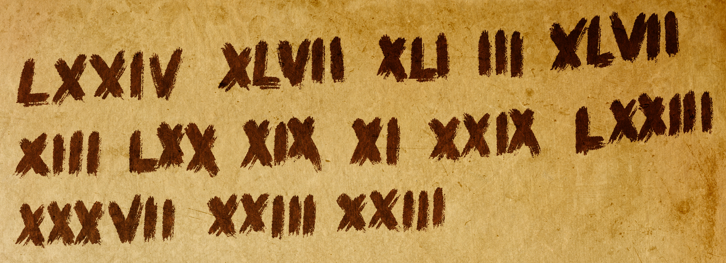 LXXIV XLVII XLI III XLVII
XIII LXX XIX XI XXIX LXXIII
XXXVII XXIII XXIII